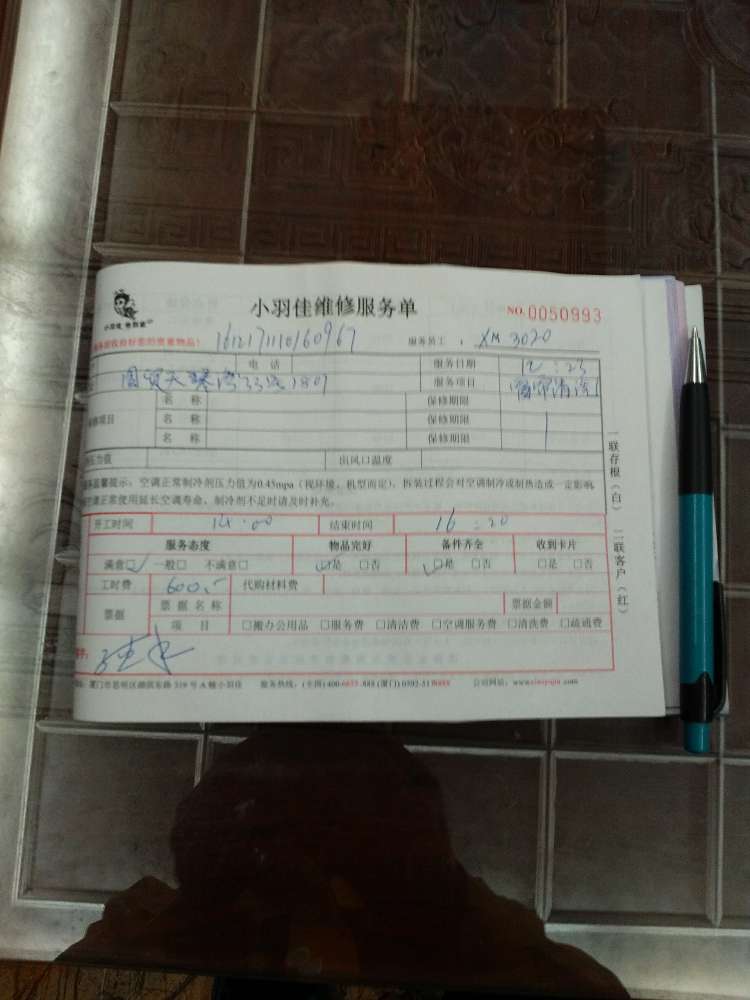 小羽佳维修服务单
NO.0050993
161217111016096
服务员工 : XM 3020
电 话
服务日期 12:23
国贸天琴湾33栋1801
服务项目 窗帘清洗
修项目 名 称 保修期限
名 称 保修期限
名 称 保修期限
压力值 出风口温度
温馨提示:空调正常制冷剂压力值为0.45mpa(视环境、机型而定),拆装过程会对空调制冷或制热造成一定影响
正常使用延长空调寿命、制冷剂不足时请及时补充。
开工时间 14:00 结束时间 16:20
服务态度 物品完好 备件齐全 收到卡片
满意□ 一般□ 不满意□ □是 □否 □是 □否 □是 □否
工时费 600.- 代购材料费
票据 票 据 名 称 票据金额
项 目 □搬办公用品 □服务费 □清洁费 □空调服务费 □清洗费 □疏通费
厦门市思明区湖滨东路319号A幢小羽佳 服务热线:(全国)400-6655-888(厦门)0592-51 8888 公司网站:www.xiaoyujia.com
一联存根(白) 二联客户(红)